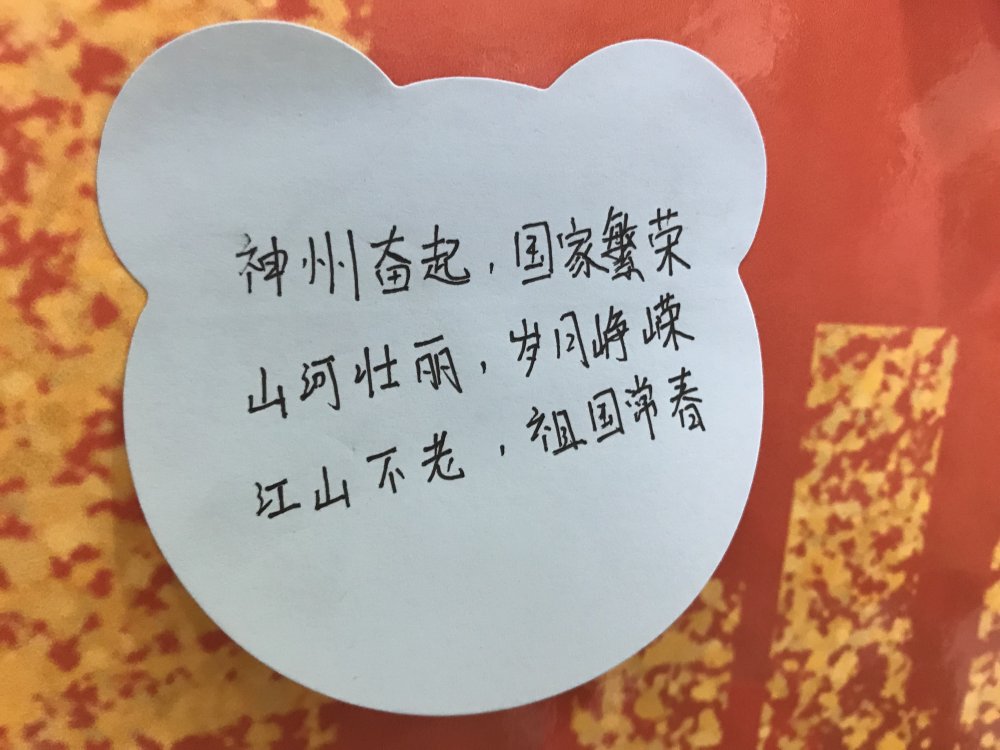 神州奋起，国家繁荣
山河壮丽，岁月峥嵘
江山不老，祖国常春